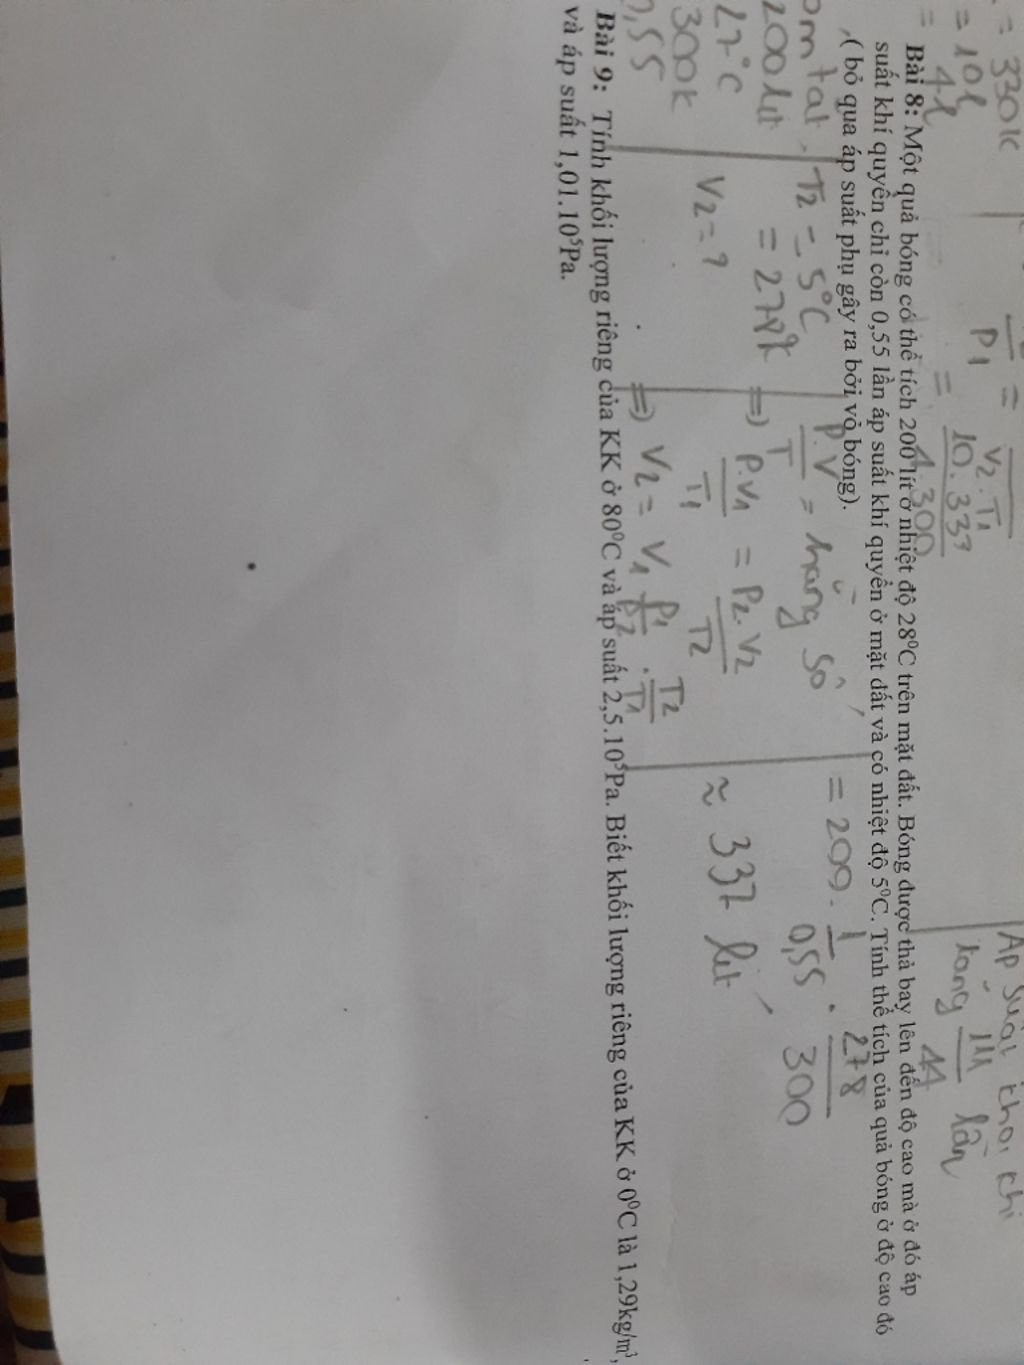 = 330K
= 10l
= 4l
P1
=
V2.T1
=
10.333
4.300
Áp suất
tăng 111 lần
44
Bài 8: Một quả bóng có thể tích 200 lít ở nhiệt độ 28⁰C trên mặt đất. Bóng được thả bay lên đến độ cao mà ở đó áp
suất khí quyển chỉ còn 0,55 lần áp suất khí quyển ở mặt đất và có nhiệt độ 5⁰C. Tính thể tích của quả bóng ở độ cao đó
,( bỏ qua áp suất phụ gây ra bởi vỏ bóng).
T2 = 5°C
200 lít
= 278K
27°C
V2 = ?
300K
0,55
P.V
T
= hằng số
=) P.V1
T1
= P2.V2
T2
=) V2 = V1 P1
P2
. T2
T1
= 200. 1
0,55
. 278
300
≈ 337 lít
Bài 9: Tính khối lượng riêng của KK ở 80⁰C và áp suất 2,5.10⁵Pa. Biết khối lượng riêng của KK ở 0⁰C là 1,29kg/m³,
và áp suất 1,01.10⁵Pa.